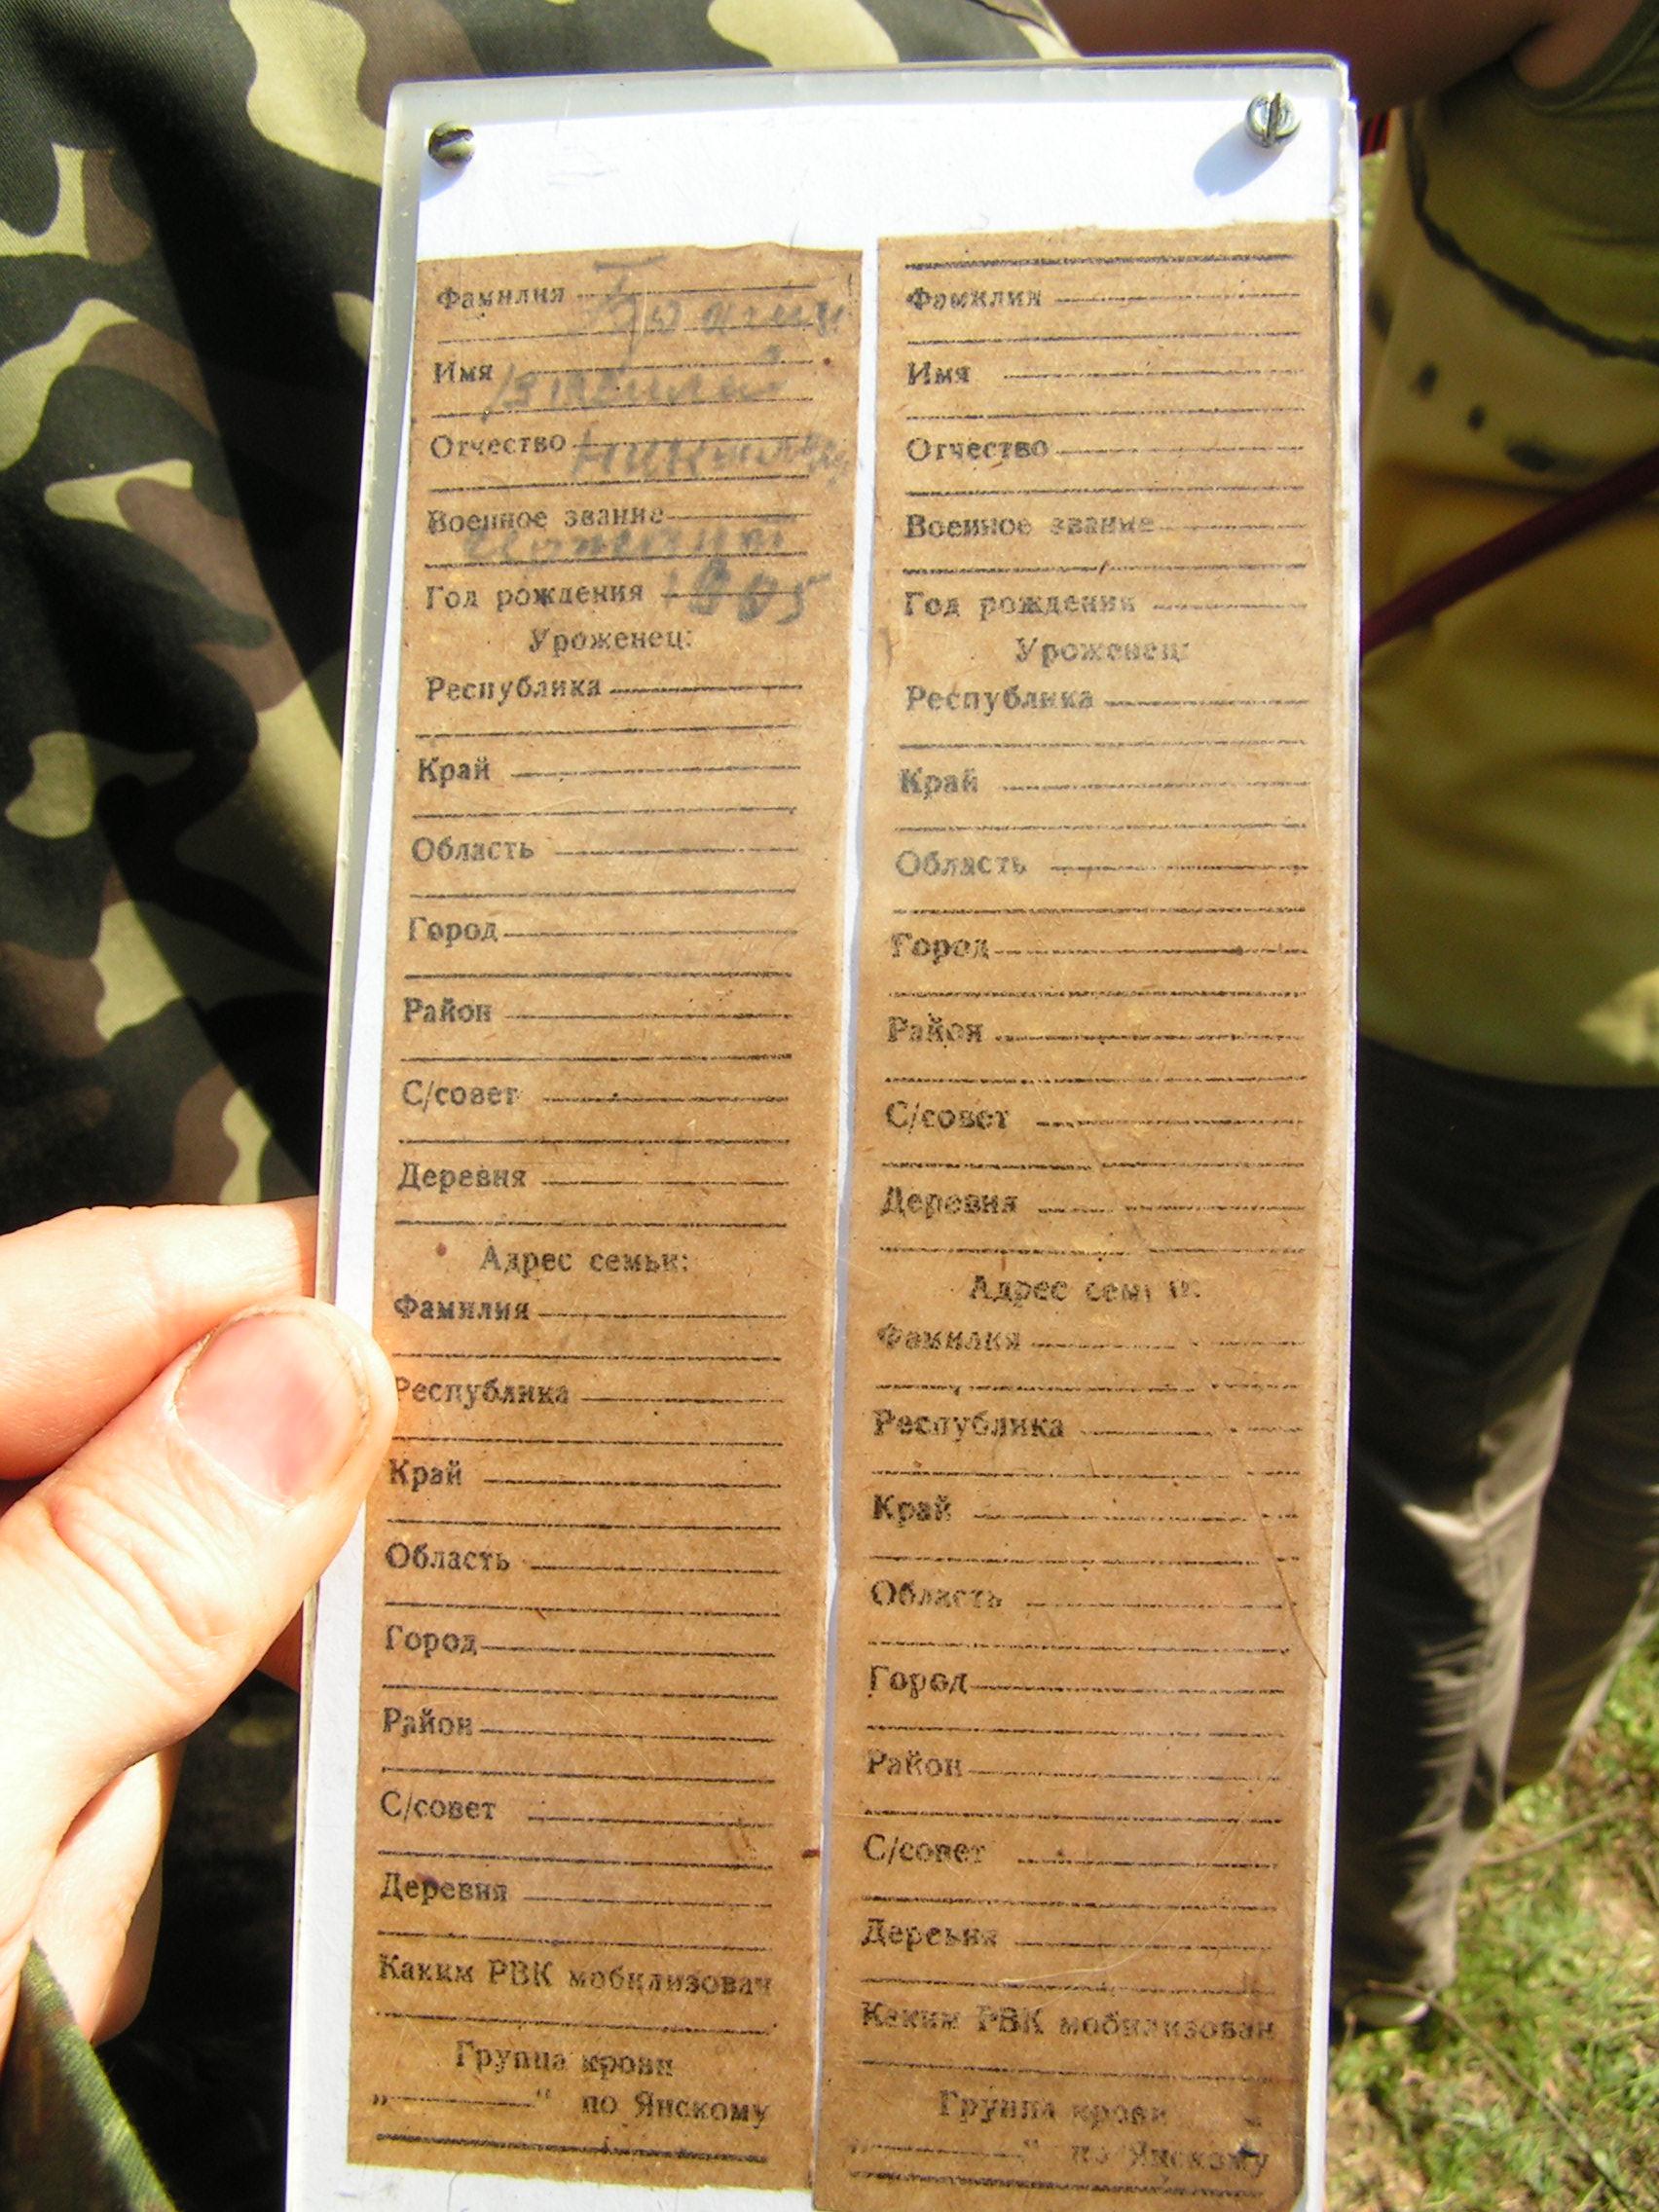 Фамилия
Имя
Отчество
Военное звание
Год рождения 1905
Уроженец:
Республика
Край
Область
Город
Район
С/совет
Деревня
Адрес семьи:
Фамилия
Республика
Край
Область
Город
Район
С/совет
Деревня
Каким РВК мобилизован
Группа крови
„ “ по Янскому
Фамилия
Имя
Отчество
Военное звание
Год рождения
Уроженец:
Республика
Край
Область
Город
Район
С/совет
Деревня
Адрес семьи:
Фамилия
Республика
Край
Область
Город
Район
С/совет
Деревня
Каким РВК мобилизован
Группа крови
„ “ по Янскому